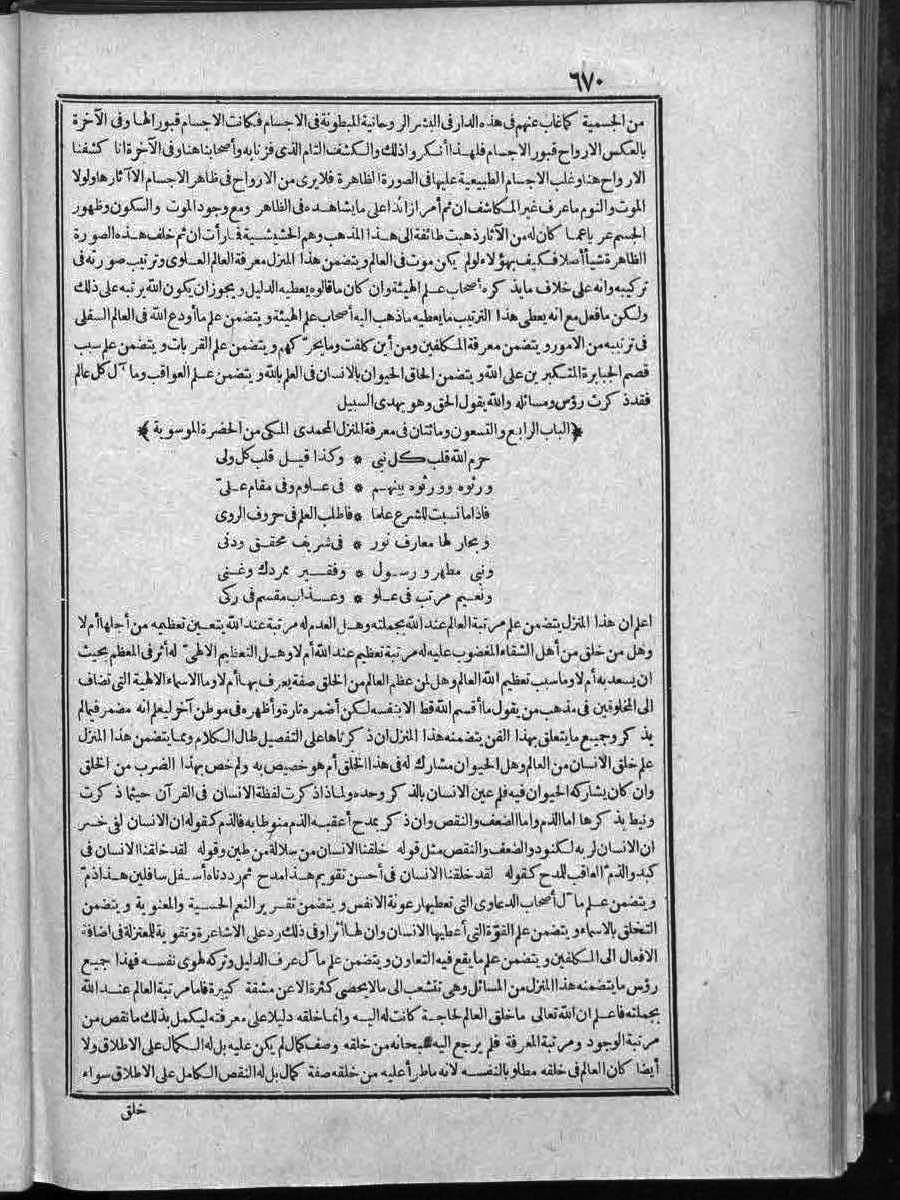 ٦٧٠
من الجسمية كما غاب عنهم فى هذه الدار فى البشر الروحانية المبطونة فى الاجسام فكانت الاجسام قبور الها وفى الآخرة
بالعكس الارواح قبور الاجسام فلهذا أنكروا ذلك والكشف التام الذى فزنا به وأصحابنا هنا وفى الآخرة انا كشفنا
الارواح هنا وغلب الاجسام الطبيعية عليها فى الصورة الظاهرة فلا يرى من الارواح فى ظاهر الاجسام الا آثارها ولولا
الموت والنوم ما عرف غير المكاشف ان ثم أمرا زائدا على ما يشاهده فى الظاهر ومع وجود الموت والسكون وظهور
الجسم عريا عما كان له من الآثار ذهبت طائفة الى هذا المذهب وهم الحشيشية فما رأت ان ثم خلف هذه الصورة
الظاهرة شيأ أصلا فكيف بهؤلاء لو لم يكن موت فى العالم ويتضمن هذا المنزل معرفة العالم العلوى وترتيب صورته فى
تركيبه وانه على خلاف ما يذكره أصحاب علم الهيئة وان كان ما قالوه يعطيه الدليل ويجوز ان يكون الله يرتبه على ذلك
ولكن ما فعل مع انه يعطى هذا الترتيب ما يعطيه ما ذهب اليه أصحاب علم الهيئة ويتضمن علم ما أودع الله فى العالم السفلى
فى ترتيبه من الامور ويتضمن معرفة المكلفين ومن أين كلفت وما يحرّكهم ويتضمن علم القربات ويتضمن علم سبب
قصم الجبابرة المتكبرين على الله ويتضمن الحاق الحيوان بالانسان فى العلم بالله ويتضمن علم العواقب وما آل كل عالم
فقد ذكرت رؤس ومسائله والله يقول الحق وهو يهدى السبيل
﴿الباب الرابع والتسعون ومائتان فى معرفة المنزل المحمدى المكى من الحضرة الموسوية﴾
حرم الله قلب كل نبى * وكذا قيل قلب كل ولى
ورثوه وورثوه بينهم * فى علوم وفى مقام علىّ
فاذا ما نسبت للشرع علما * فاطلب العلم فى حروف الروى
وبحار لها معارف نور * فى شريف محقق ودنى
ونبى مطهر ورسول * وفقير ممردك وغنى
ونعيم مرتب فى علو * وعذاب مقسم فى ركى
اعلم ان هذا المنزل يتضمن علم مرتبة العالم عند الله بجملته وهل العدم له مرتبة عند الله يتعين تعظيمه من أجلها أم لا
وهل من خلق من أهل الشقاء المغضوب عليه له مرتبة تعظيم عند الله أم لا وهل التعظيم الالهىّ له أثر فى المعظم بحيث
ان يسعد به أم لا وما سبب تعظيم الله العالم وهل لمن عظم العالم من الخلق صفة يعرف بها أم لا وما الاسماء الالهية التى تضاف
الى المخلوقين فى مذهب من يقول ما أقسم الله قط الا بنفسه لكن أضمره تارة وأظهره فى موطن آخر ليعلم انه مضمر فيما لم
يذكر وجميع ما يتعلق بهذا الفن يتضمنه هذا المنزل ان ذكرناها على التفصيل طال الكلام ومما يتضمن هذا المنزل
علم خلق الانسان من العالم وهل الحيوان مشارك له فى هذا الخلق أم هو خصيص به ولم خص بهذا الضرب من الخلق
وان كان يشاركه الحيوان فيه فلم عين الانسان بالذكر وحده ولماذا ذكرت لفظة الانسان فى القرآن حيثما ذكرت
ونيط بذكرها اما الذم واما الضعف والنقص وان ذكر بمدح أعقبه الذم منوطا به فالذم كقوله ان الانسان لفى خسر
ان الانسان لربه لكنود والضعف والنقص مثل قوله خلقنا الانسان من سلالة من طين وقوله لقد خلقنا الانسان فى
كبد والذمّ العاقب للمدح كقوله لقد خلقنا الانسان فى أحسن تقويم هذا مدح ثم رددناه أسفل سافلين هذا ذمّ
ويتضمن علم مآل أصحاب الدعاوى التى تعطيها رعونة الانفس ويتضمن تقرير النعم الحسية والمعنوية ويتضمن
التخلق بالاسماء ويتضمن علم القوّة التى أعطيها الانسان وان لها أثرا وفى ذلك رد على الاشاعرة وتقوية للمعتزلة فى اضافة
الافعال الى المكلفين ويتضمن علم ما يقع فيه التعاون ويتضمن علم مآل عرف الدليل وتركه لهوى نفسه فهذا جميع
رؤس ما يتضمنه هذا المنزل من المسائل وهى تنشعب الى ما لا يحصى كثرة الا عن مشقة كبيرة فاما مرتبة العالم عند الله
بجملته فاعلم ان الله تعالى ما خلق العالم لحاجة كانت له اليه وانما خلقه دليلا على معرفته ليكمل بذلك ما نقص من
مرتبة الوجود ومرتبة المعرفة فلم يرجع اليه سبحانه من خلقه وصف كمال لم يكن عليه بل له الكمال على الاطلاق ولا
أيضا كان العالم فى خلقه مطلوبا لنفسه لانه ما طرأ عليه من خلقه صفة كمال بل له النقص الكامل على الاطلاق سواء
خلق